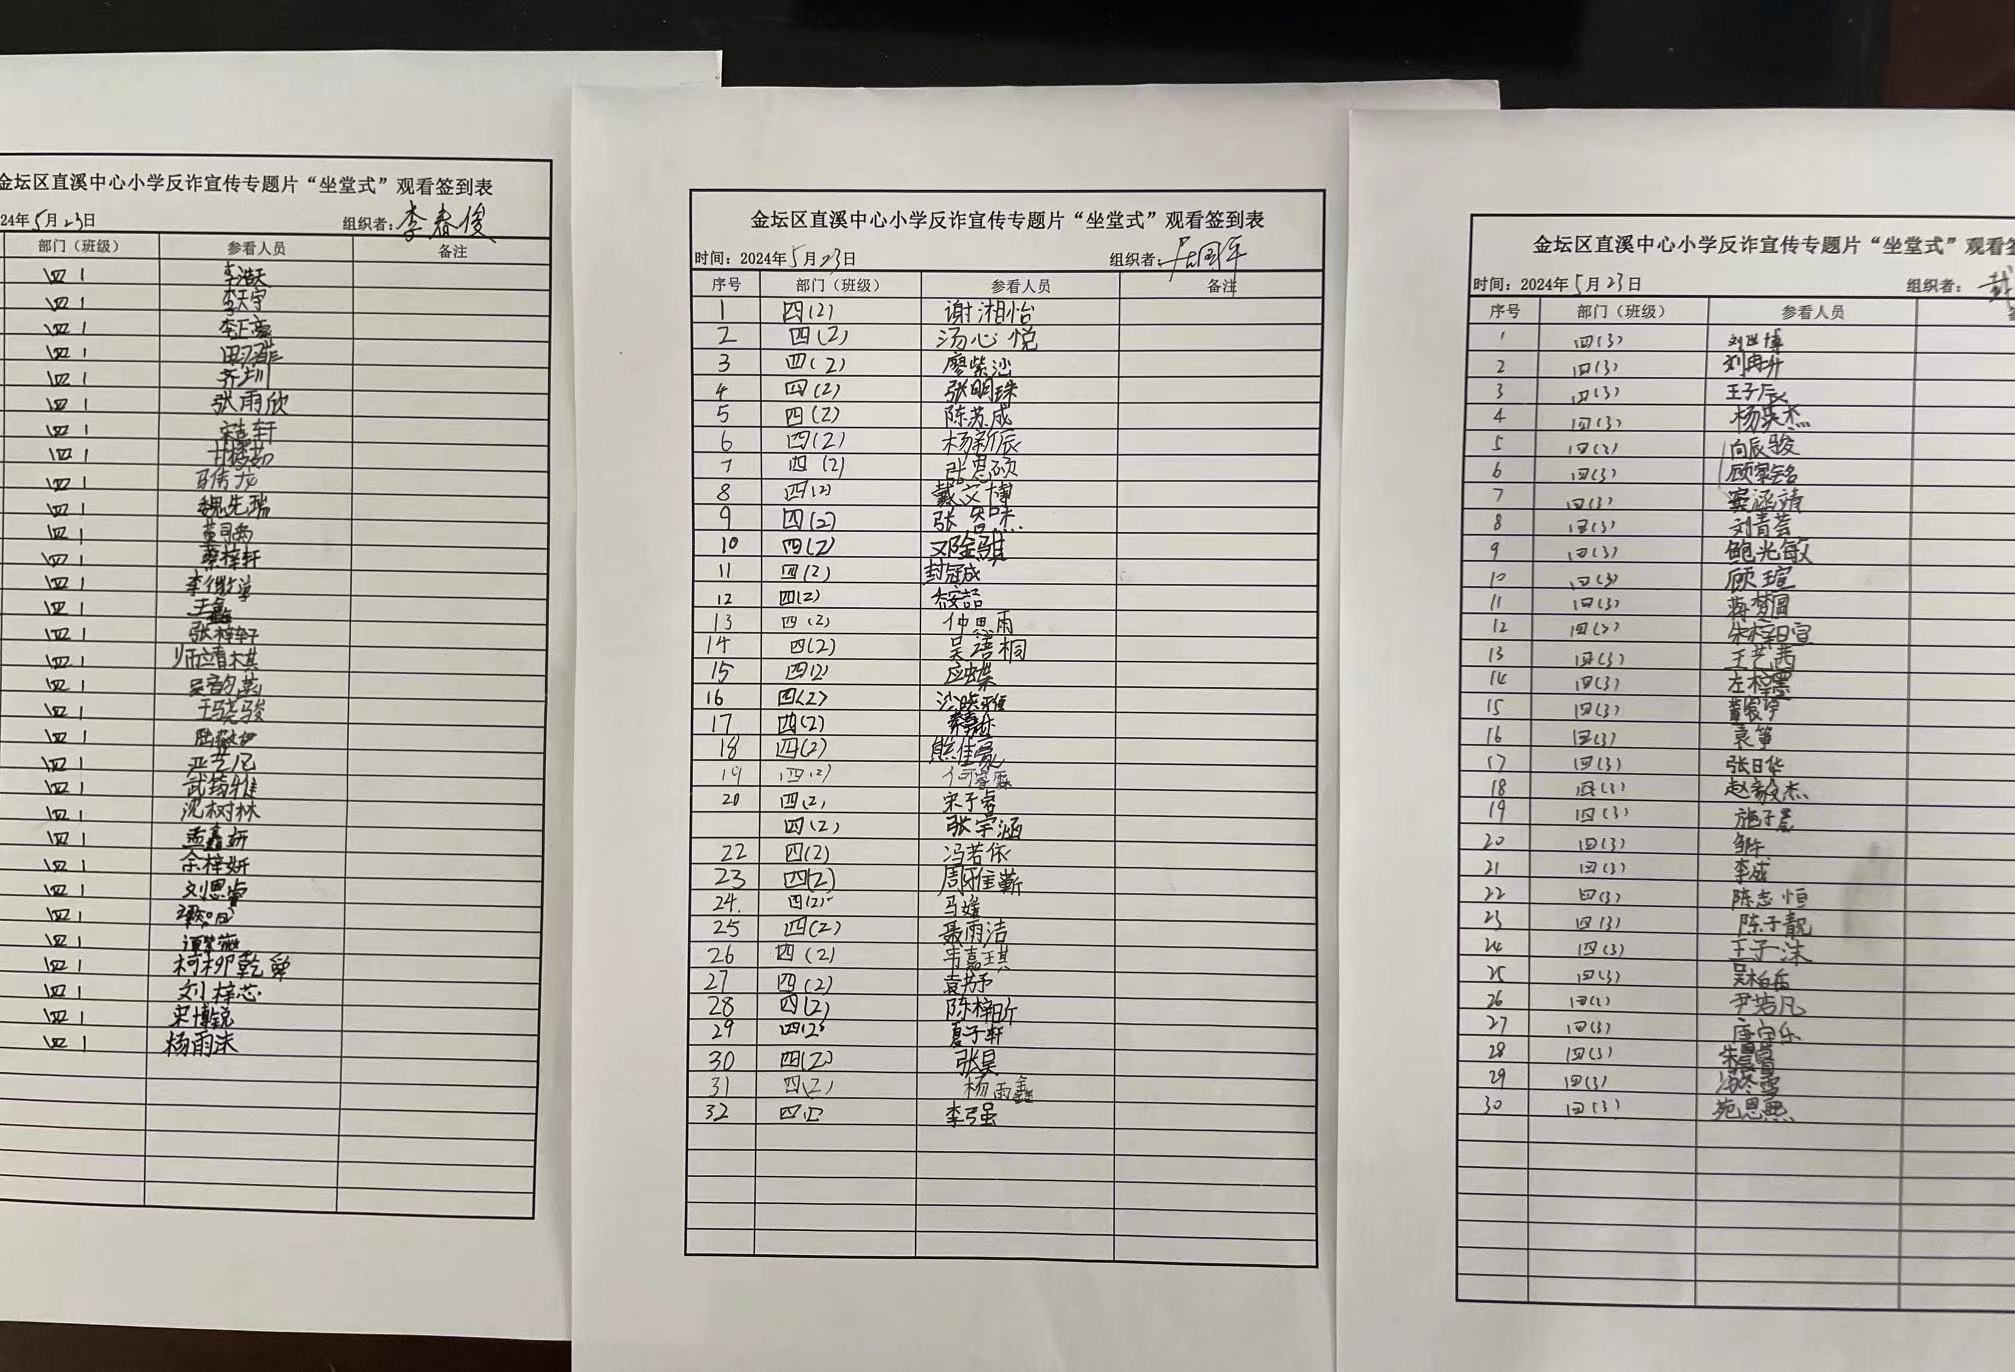 金坛区直溪中心小学反诈宣传专题片“坐堂式”观看签到表
24年5月23日 组织者:李春俊
部门（班级） 参看人员 备注
四1 李浩天
四1 李天宇
四1 李正亮
四1
四1 齐圳
四1 张雨欣
四1 宋志轩
四1
四1 马伟龙
四1 魏先瑞
四1
四1 蔡梓轩
四1
四1 王鑫
四1 张梓轩
四1 师靖棋
四1 吴韵菡
四1 王骁骏
四1
四1 严艺凡
四1 武筠雅
四1 沈树林
四1 孟鑫妍
四1 余梓妍
四1 刘恩睿
四1
四1
四1 柯柳乾舜
四1 刘梓芯
四1 宋博锐
四1 杨雨沫
金坛区直溪中心小学反诈宣传专题片“坐堂式”观看签到表
时间：2024年5月23日 组织者:
序号 部门（班级） 参看人员 备注
1 四(2) 谢湘怡
2 四(2) 汤心悦
3 四(2) 廖紫沙
4 四(2) 张明珠
5 四(2) 陈苏成
6 四(2) 杨新辰
7 四(2) 张思硕
8 四(2) 戴文博
9 四(2) 张
10 四(2)
11 四(2) 封冠成
12 四(2)
13 四(2) 仲思雨
14 四(2) 吴语桐
15 四(2) 应蝶
16 四(2)
17 四(2)
18 四(2) 熊佳豪
19 四(2) 何睿霖
20 四(2) 宋子睿
四(2) 张宇涵
22 四(2) 冯若依
23 四(2) 周雅蕲
24. 四(2) 马媛
25 四(2) 聂雨洁
26 四(2) 韦嘉琪
27 四(2) 袁艺予
28 四(2) 陈梓昕
29 四(2) 夏子轩
30 四(2) 张昊
31 四(2) 杨雨鑫
32 四(2) 李弓强
金坛区直溪中心小学反诈宣传专题片“坐堂式”观看签
时间：2024年5月23日 组织者：
序号 部门（班级） 参看人员
1 四(3) 刘世博
2 四(3) 刘冉升
3 四(3) 王子辰
4 四(3) 杨英杰
5 四(3) 向辰骏
6 四(3) 顾家铭
7 四(3) 窦涵靖
8 四(3) 刘青芸
9 四(3) 鲍光敏
10 四(3) 顾瑄
11 四(3) 蒋梦圆
12 四(3) 朱梓萱
13 四(3) 王艺茜
14 四(3) 左梓墨
15 四(3) 董宸宇
16 四(3) 袁筝
17 四(3) 张日华
18 四(3) 赵毅杰
19 四(3) 施子晨
20 四(3) 邹午
21 四(3) 李成
22 四(3) 陈志恒
23 四(3) 陈子靓
24 四(3) 王子沫
25 四(3) 吴柏岳
26 四(3) 尹若凡
27 四(3) 唐宇乐
28 四(3) 朱晨萱
29 四(3) 冯冬雪
30 四(3) 苑思熙